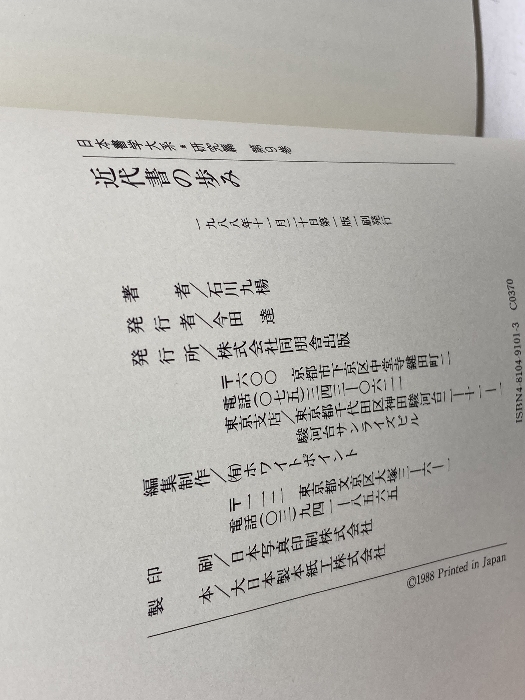 日本書学大系・研究篇 第9巻
近代書の歩み
一九八八年十一月二十日第一版一刷発行
著者/石川九楊
発行者/今田 達
発行所/株式会社同朋舎出版
〒六〇〇 京都市下京区中堂寺鍵田町二
電話(〇七五)三四三―〇六二一
東京支店/東京都千代田区神田駿河台二―十一―一
駿河台サンライズビル
編集制作/(有)ホワイトポイント
〒一一二 東京都文京区大塚三―六―一
電話(〇三)九四一―八五六五
印刷/日本写真印刷株式会社
製本/大日本製本紙工株式会社
©1988 Printed in Japan
ISBN4-8104-9101-3 C0370